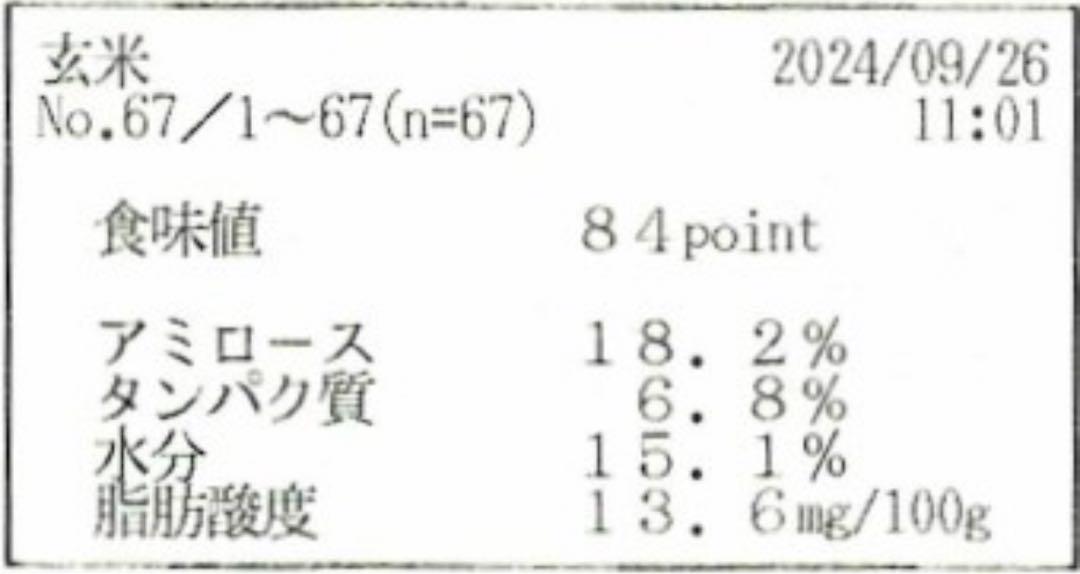 玄米 2024/09/26
No.67／1～67(n=67) 11:01
食味値 84point
アミロース 18.2%
タンパク質 6.8%
水分 15.1%
脂肪酸度 13.6mg/100g